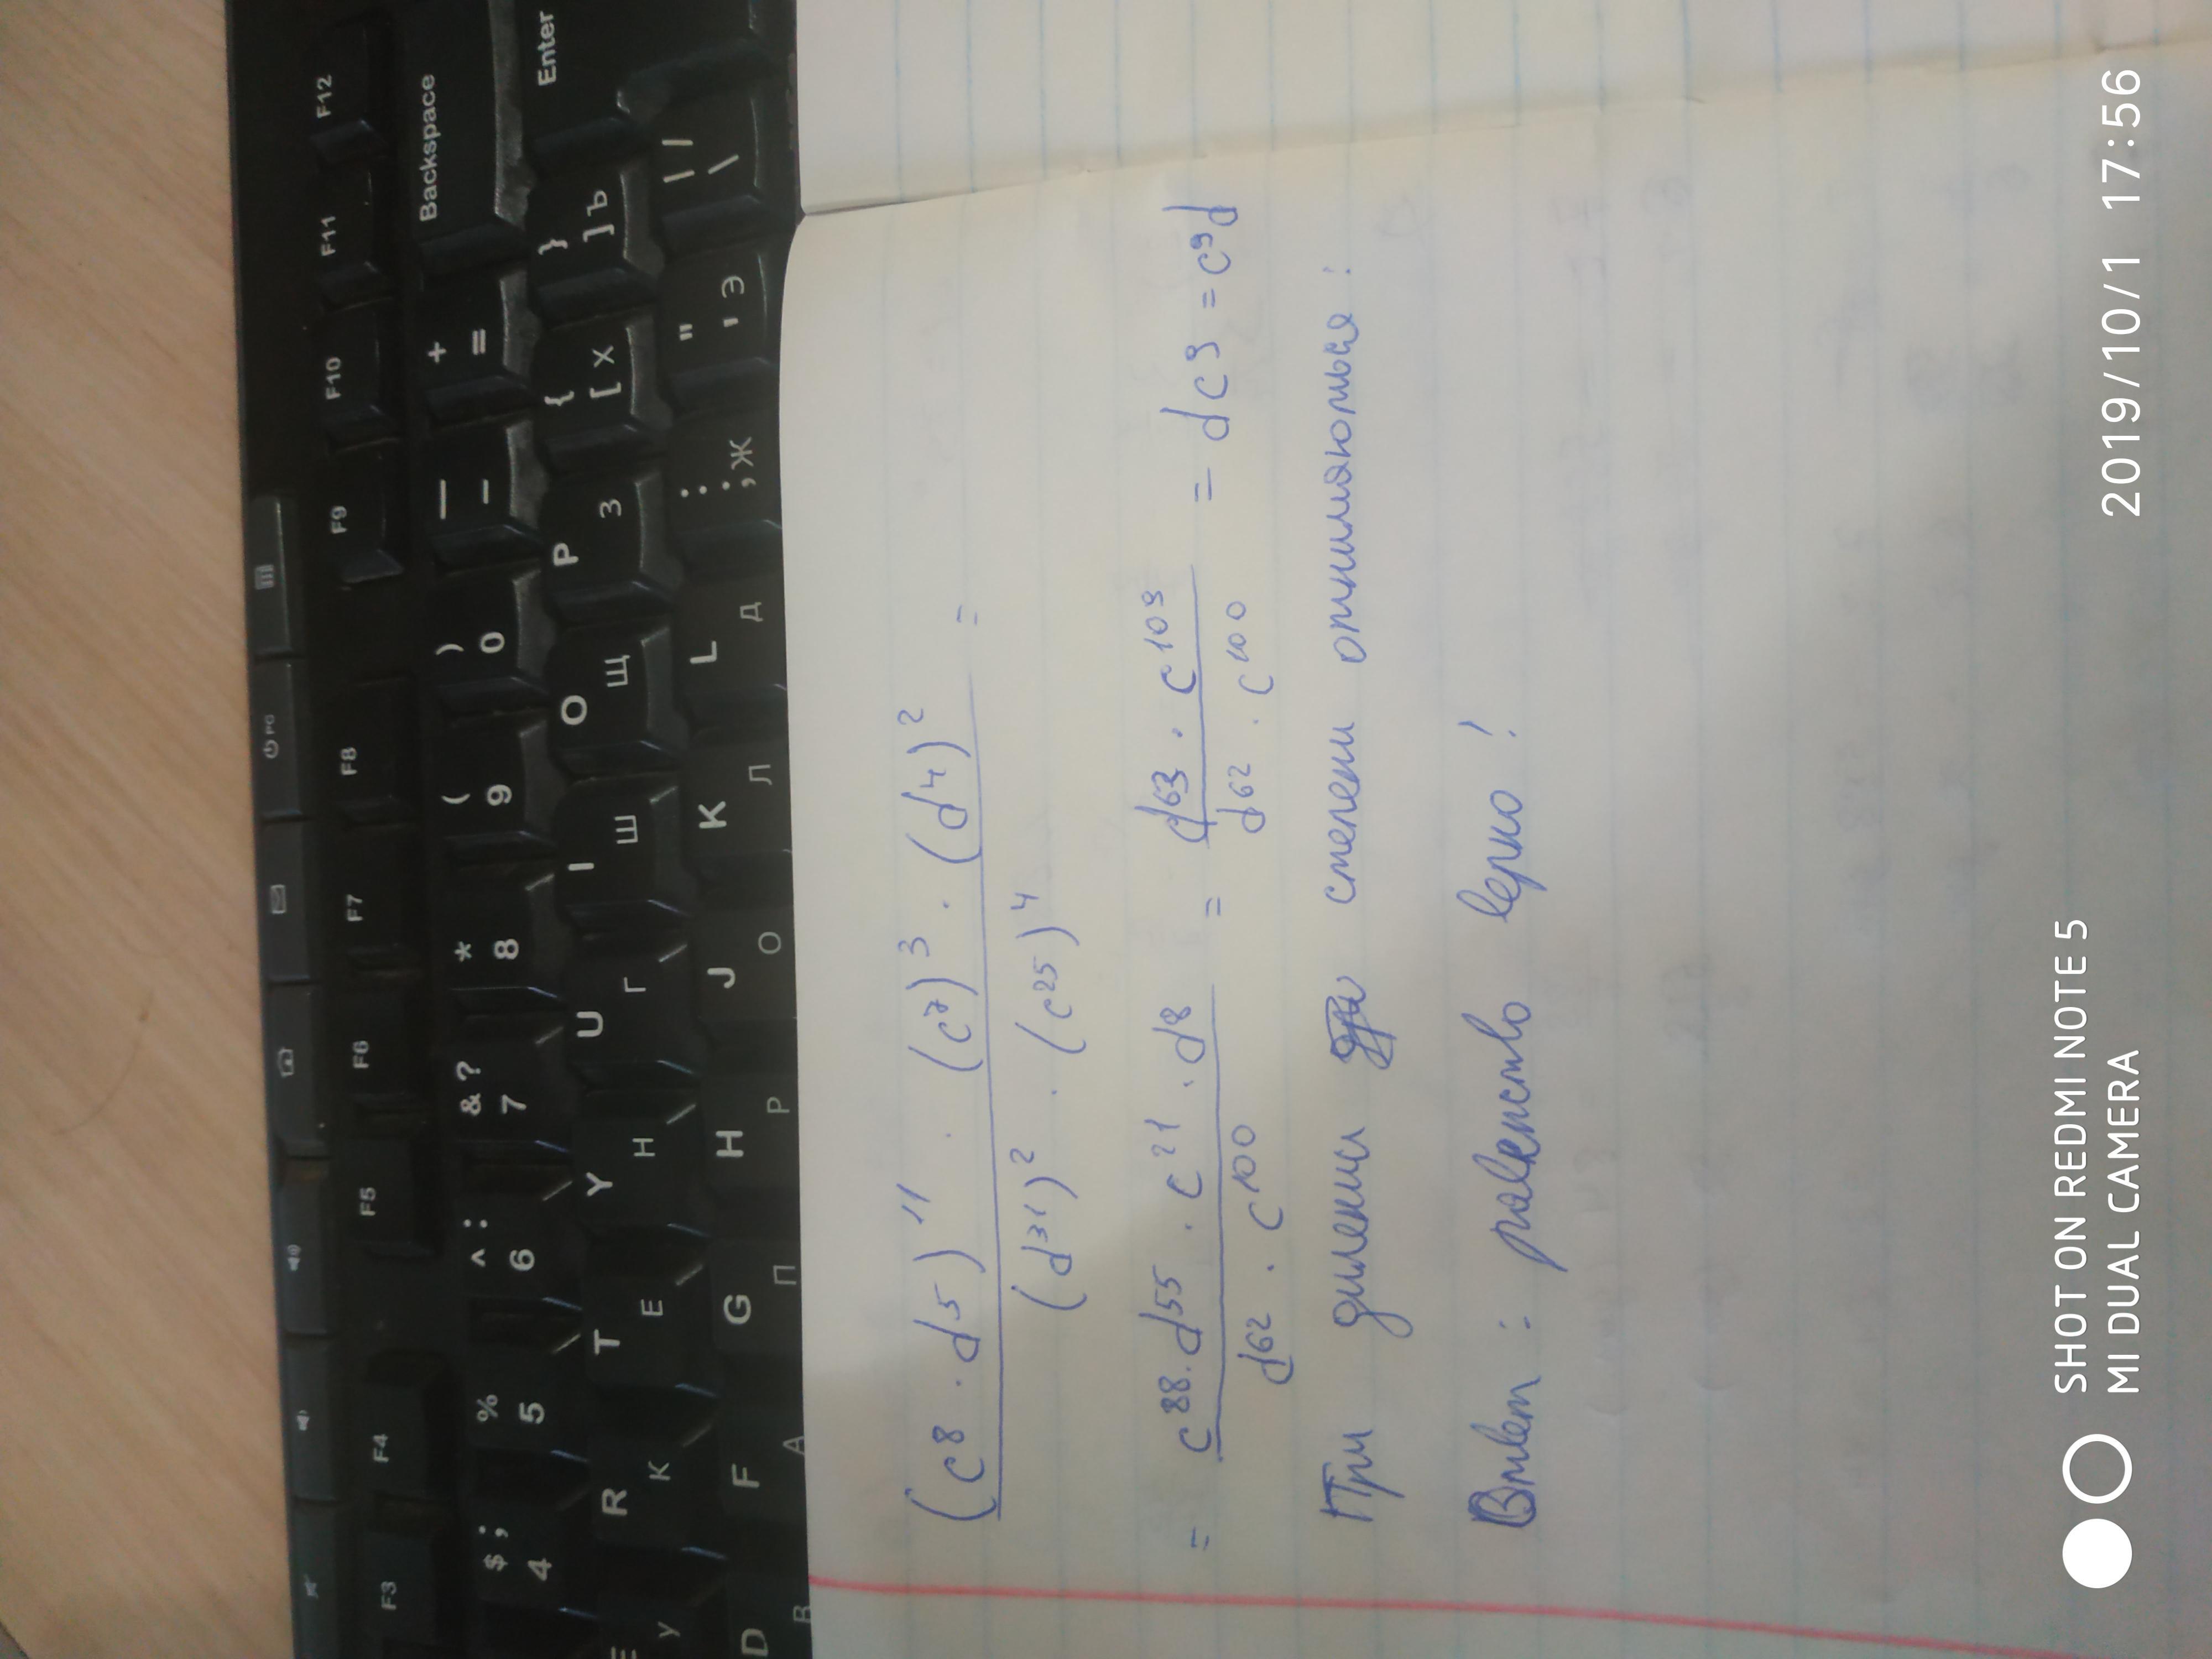 F3 F4 F5 F6 F7 F8 F9 F10 F11 F12
$ ; 4 % 5 ^ : 6 & ? 7 * 8 ( 9 ) 0 — - + = Backspace
R К T Е Y Н U Г I Ш O Щ P З { [ Х } ] Ъ Enter
У
D В F А G П H Р J О K Л L Д : ; Ж " ' Э | / \
(c⁸ · d⁵)¹¹ · (c⁷)³ · (d⁴)² =
(d³¹)² · (c²⁵)⁴
= c⁸⁸ · d⁵⁵ · c²¹ · d⁸ = d⁶³ · c¹⁰⁹ = dc9 = c⁹d
d⁶² · c¹⁰⁰ d⁶² · c¹⁰⁰
При дилении степени отнимяються!
Ответ: равенство верно!
SHOT ON REDMI NOTE 5
MI DUAL CAMERA
2019/10/1 17:56